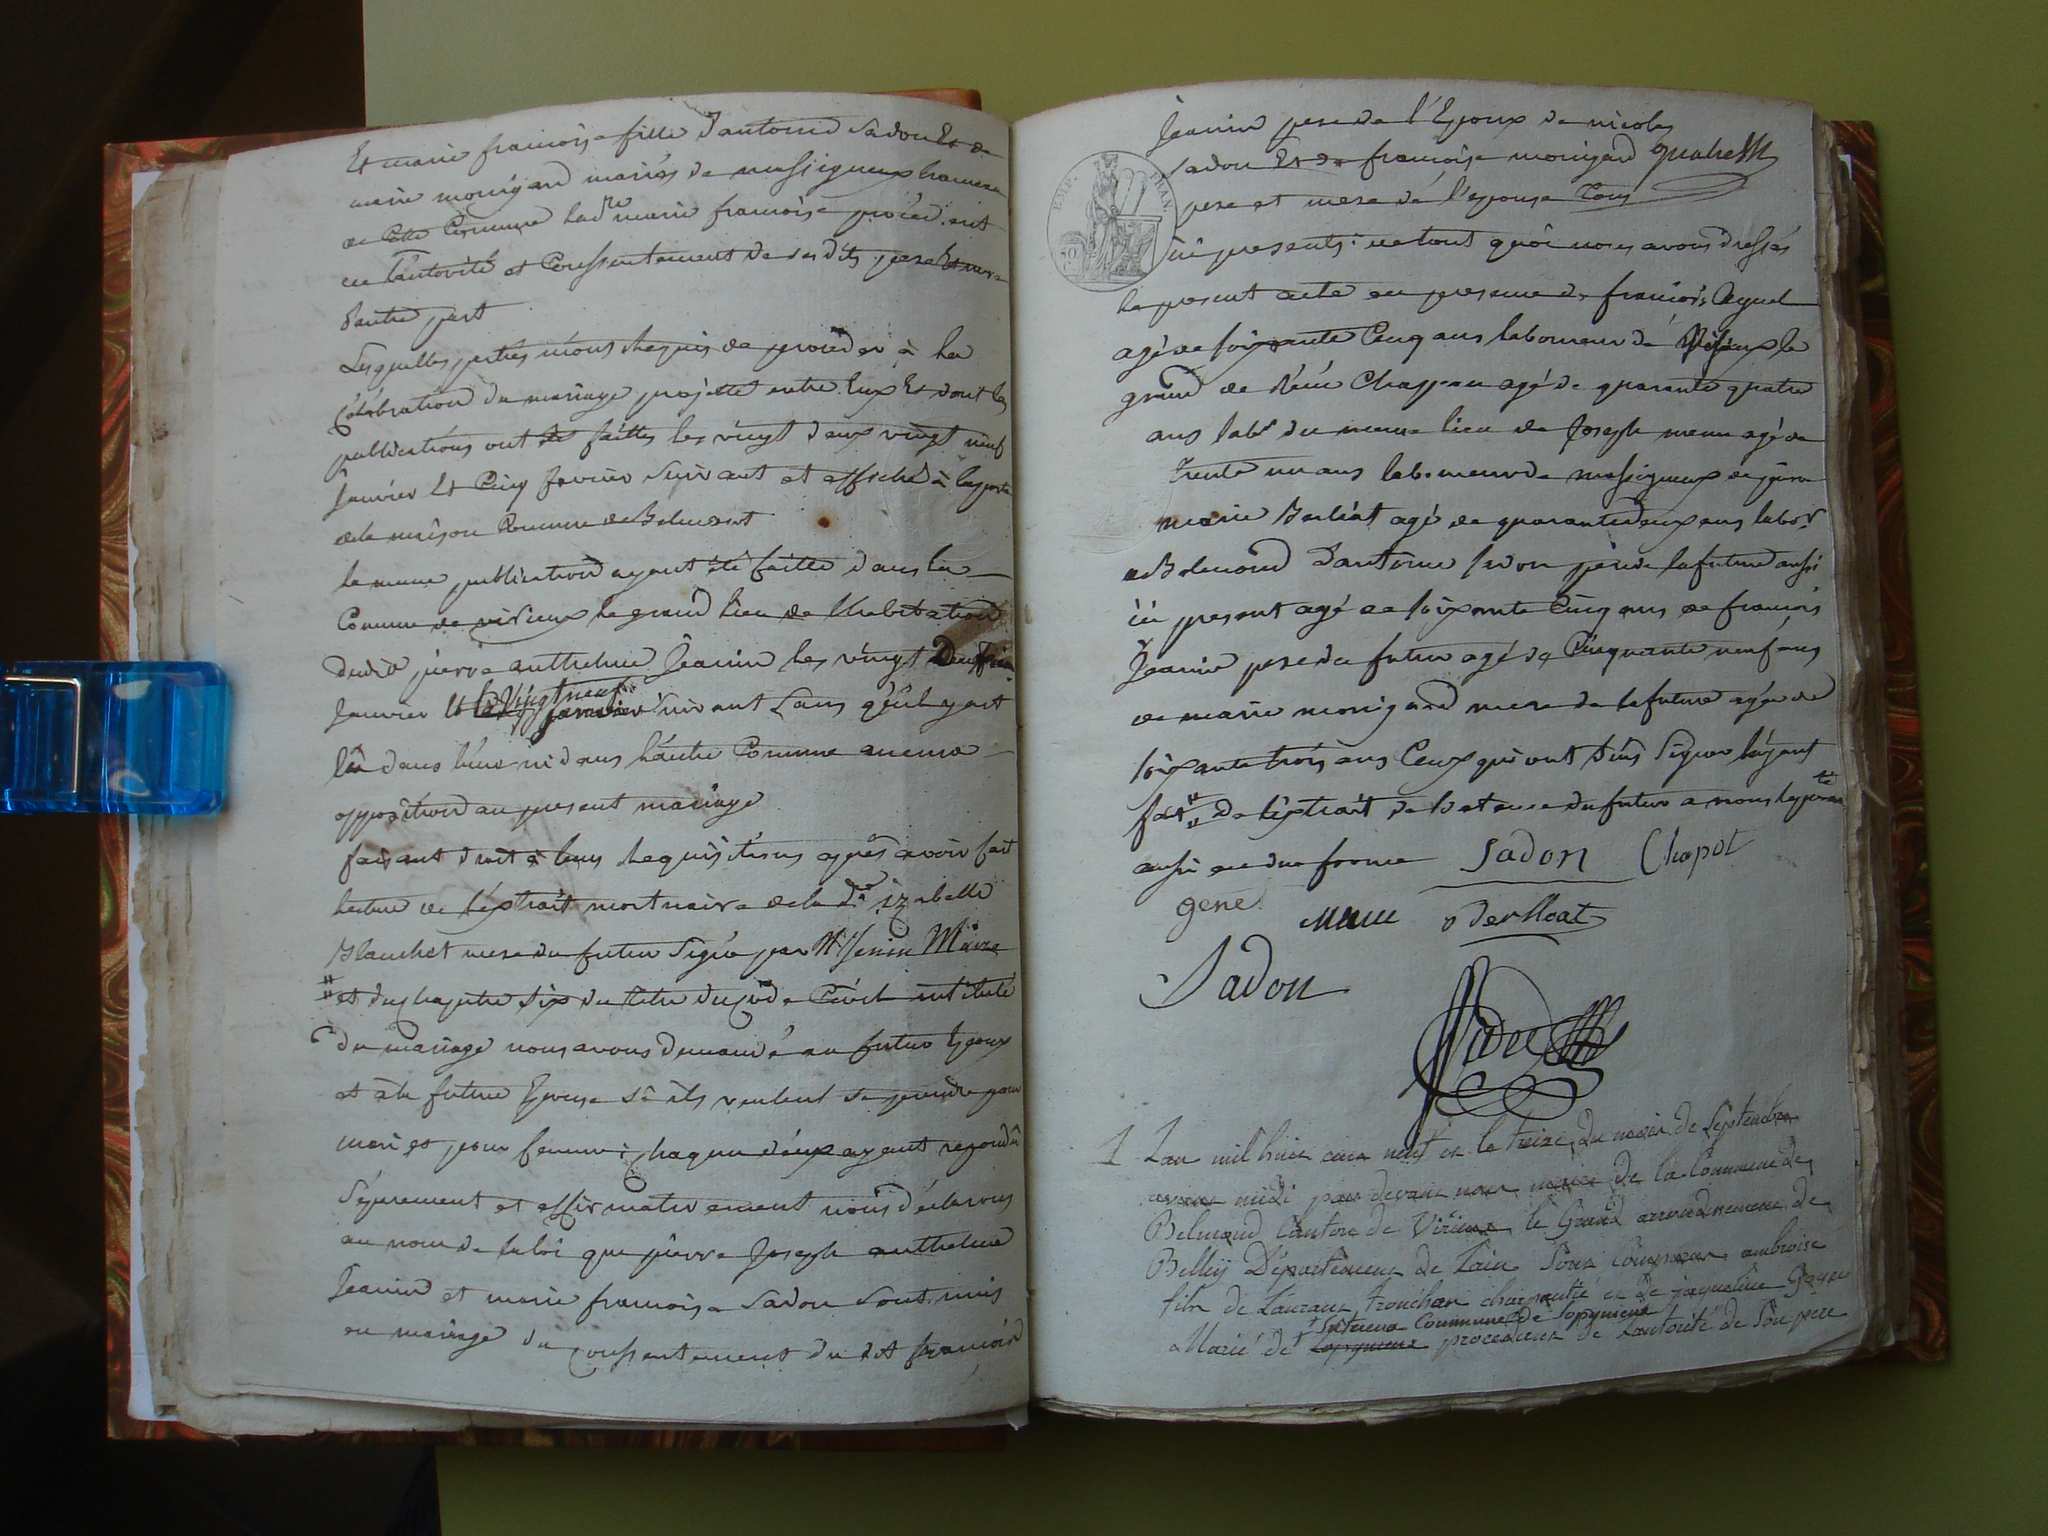 Et marie francoise fille d'antoine Sadon Et de
marie monigard mariés de messigneux hameau
de Cette Commune lad.te marie francoise procédant
en l'autorité et Consentement de ses dits pere Et mere
d'autre part
Lesquelles parties nous requis de proceder à la
Célébration du mariage projetté entre Eux Et dont les
publications ont été faittes les vingt deux vingt neuf
janvier Et Cinq fevrier suivant et affiché à la porte
de la maison Commune de Belmont
la meme publication ayant été faitte dans la
Commune de virieux le grand lieu de l'habitation
dudit pierre anthelme Jeanin les vingt Deux
Janvier Et le vingt neuf
janvier suivant sans qu'il y ait
dans l'une ni dans l'autre Commune aucune
opposition au present mariage
faisant droit à leurs requisitions après avoir fait
lecture de l'extrait mortuaire de la d. izabelle
Blanchet mere du futur signé par Mr Jenin Maire
et du chapitre six du titre du Code Civil intitulé
du mariage nous avons demandé au futur Epoux
et à la future Epouse si ils veulent se prendre pour
mari et pour femme chaqun d'eux ayant repondu
séparement et affirmativement nous déclarons
au nom de la loi que pierre Joseph anthelme
Jeanin et marie francoise Sadon sont unis
en mariage du Consentement du dit francois
Jeanin pere de l'Epoux de nicolas
Sadon Et de francoise monigard
pere et mere de l'epouse tous
EMP. FRAN.
ici presents: de tout quoi nous avons dressés
le present acte en presence de francois
agé de soixante Cinq ans laboureur de Virieux le
grand de Chappeau agé de quarante quatre
ans lab.r du meme lieu de Joseph meme agé de
trente un ans laboureur de messigneux de
marie Berliat agé de quarante deux ans labo.r
de Belmond d'antoine Sadon père de la future aussi
ici present agé de soixante Cinq ans de francois
Jeanin pere du futur agé de Cinquante neuf ans
de marie monigard mere de la future agée de
soixante trois ans Ceux qui ont sçus signer l'ayant
fait De l'extrait de naissance du futur a nous
aussi en due forme Sadon Chapot
gene meme Berlioat
Sadon
1 L'an mil huit cent neuf et le treize du mois de Septembre
avant midi par devant nous maire de la Commune de
Belmond Canton de Virieux le Grand arrondissement de
Belley Département de Lain Sont comparus ambroise
fils de Laurant tronchon charpantié et de jaqueline
+ Commune de Sopymeux
Marié de + procédant de l'autorité de Son père